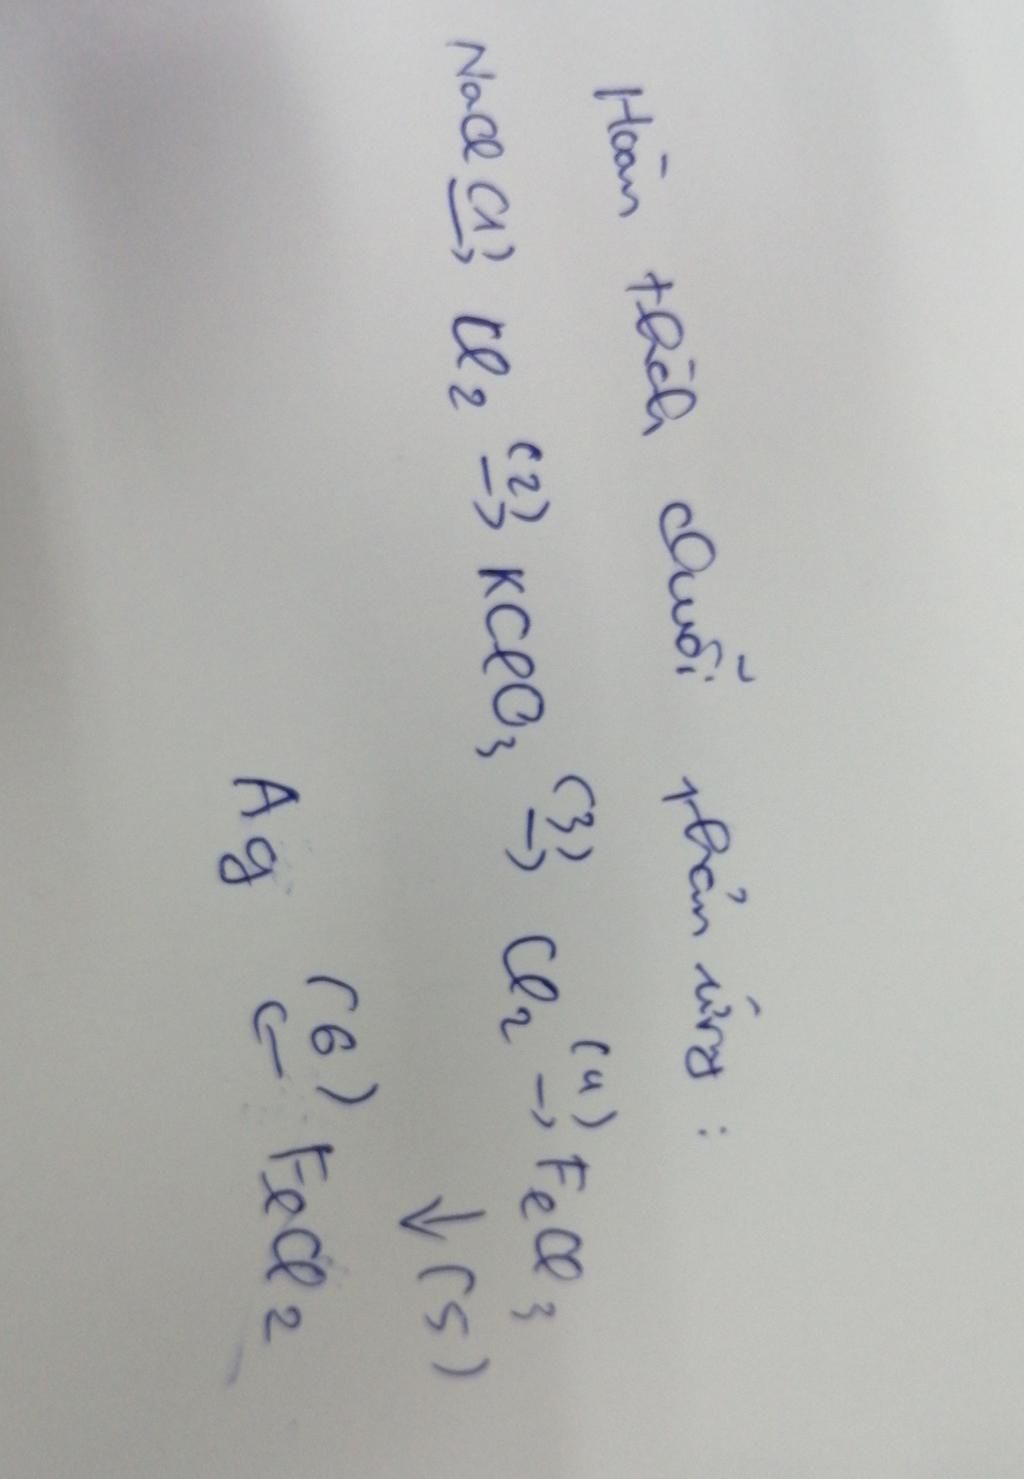 Hoàn thành chuỗi phản ứng :
NaCl (1)→ Cl2 (2)→ KClO3 (3)→ Cl2 (4)→ FeCl3
↓ (5)
Ag (6)← FeCl2